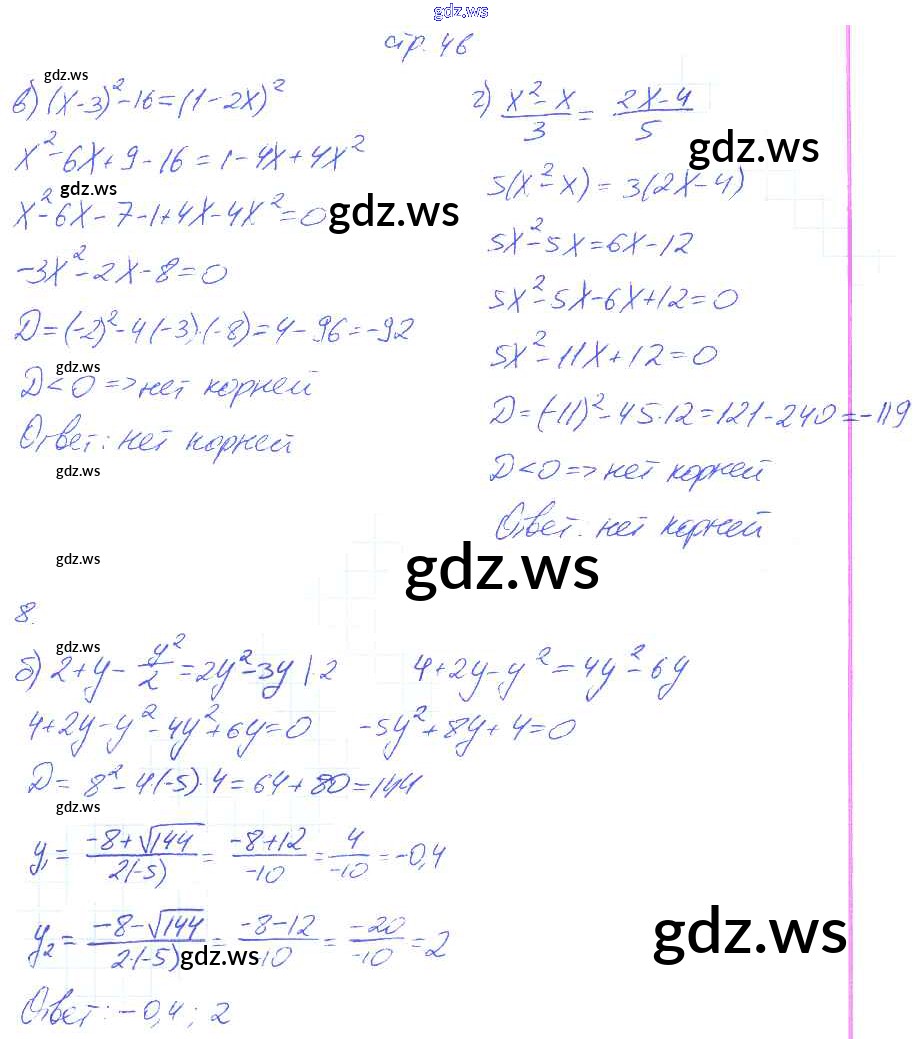 gdz.ws
стр. 46
gdz.ws
в) (x-3)²-16=(1-2x)²
x²-6x+9-16=1-4x+4x²
gdz.ws
x²-6x-7-1+4x-4x²=0
gdz.ws
-3x²-2x-8=0
D=(-2)²-4·(-3)·(-8)=4-96=-92
gdz.ws
D<0=>нет корней
Ответ: нет корней
gdz.ws
г) (x²-x)/3 = (2x-4)/5
gdz.ws
5(x²-x)=3(2x-4)
5x²-5x=6x-12
5x²-5x-6x+12=0
5x²-11x+12=0
D=(-11)²-4·5·12=121-240=-119
D<0=>нет корней
Ответ: нет корней
gdz.ws
gdz.ws
8.
gdz.ws
б) 2+y-y²/2=2y²-3y |·2 4+2y-y²=4y²-6y
4+2y-y²-4y²+6y=0 -5y²+8y+4=0
D=8²-4·(-5)·4=64+80=144
gdz.ws
y₁=(-8+√144)/(2(-5))=(-8+12)/(-10)=4/(-10)=-0,4
y₂=(-8-√144)/(2·(-5))=(-8-12)/(-10)=(-20)/(-10)=2
gdz.ws
gdz.ws
Ответ: -0,4; 2